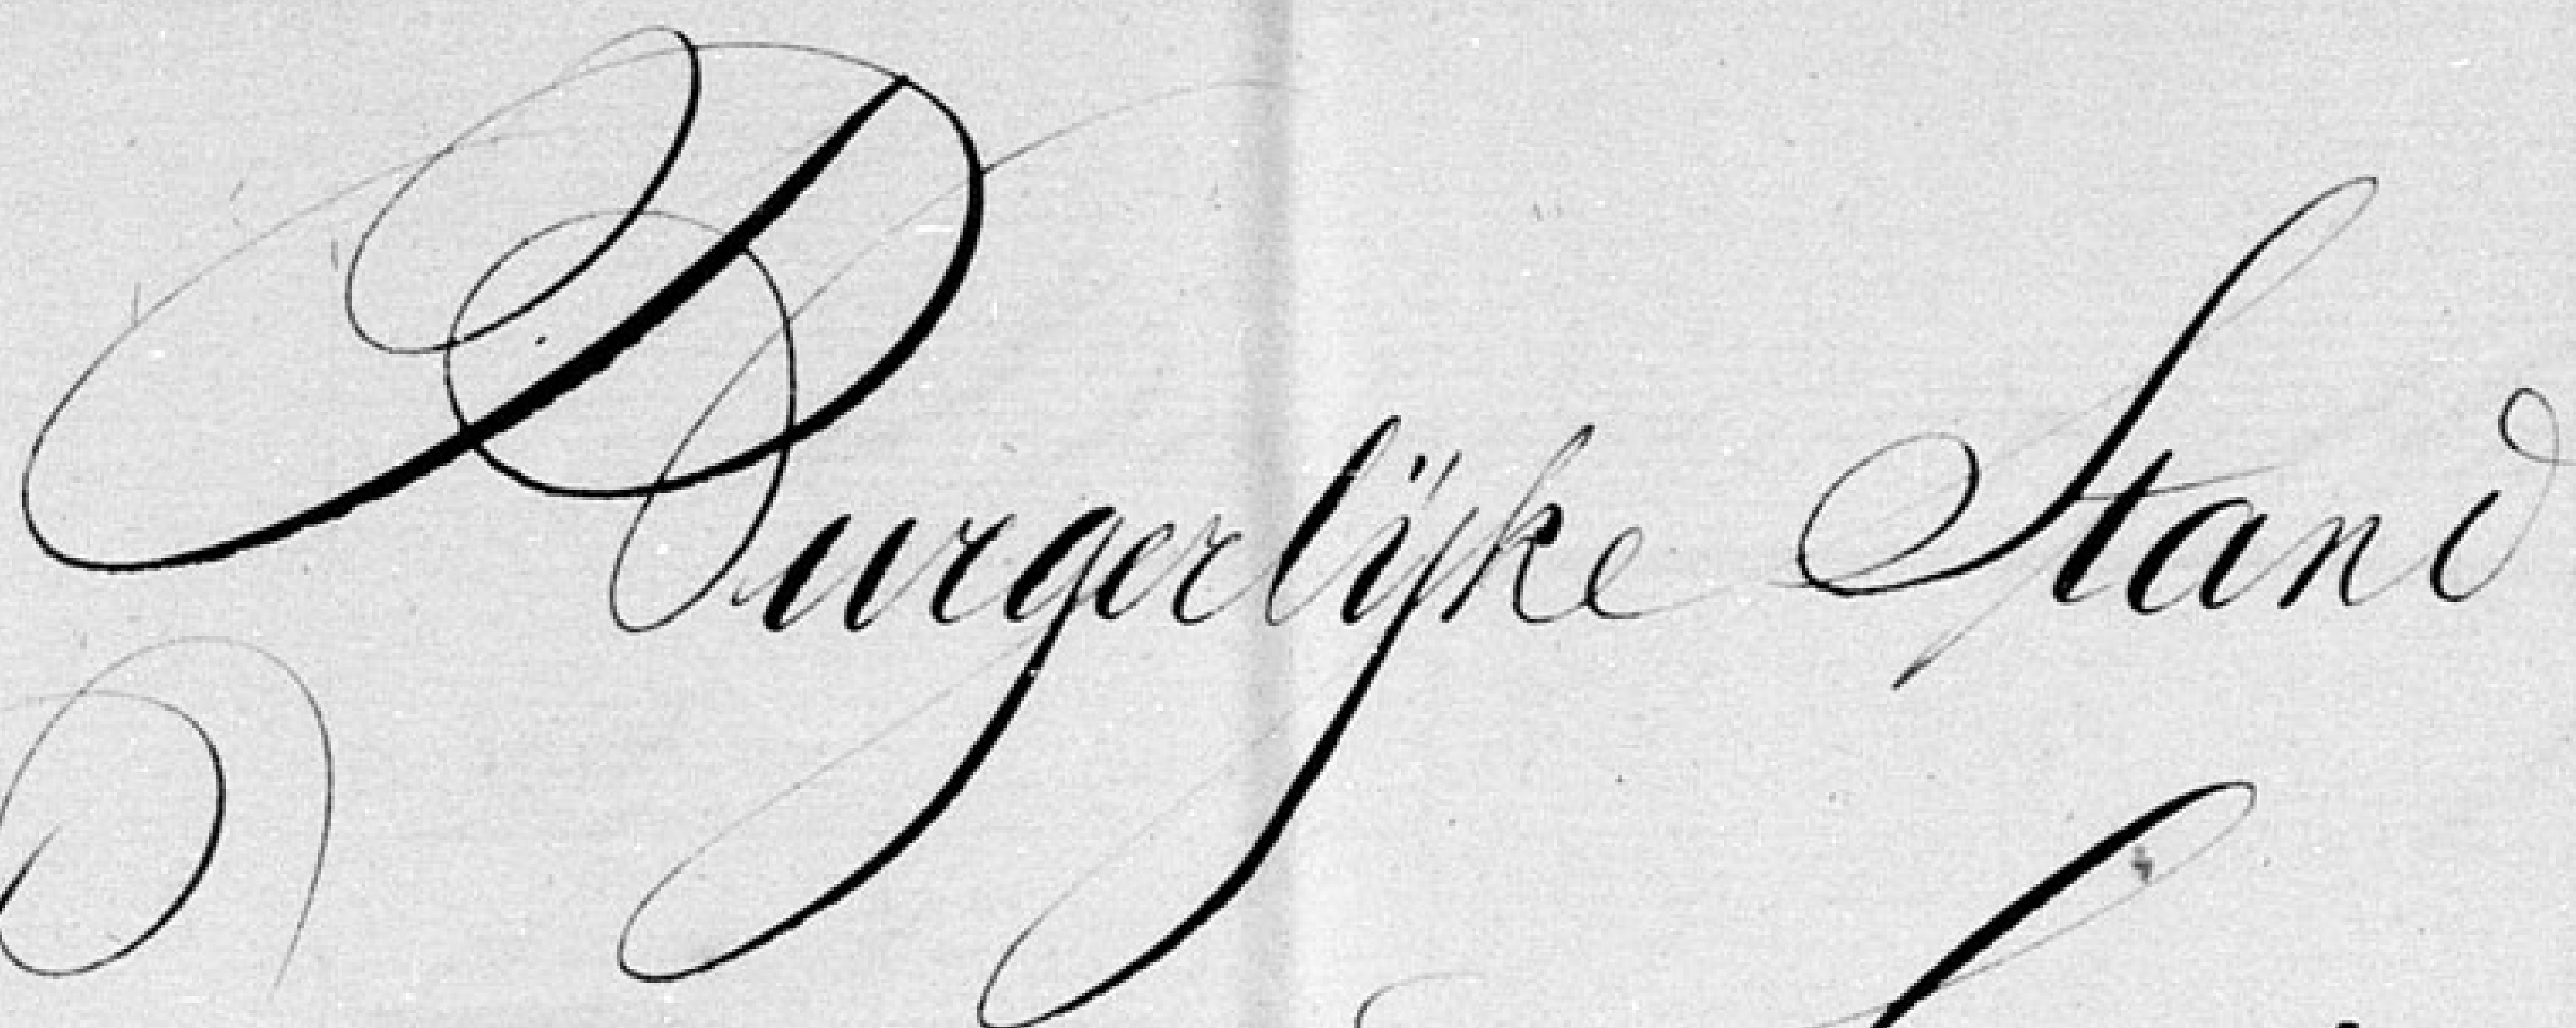 Burgerlijke Stand